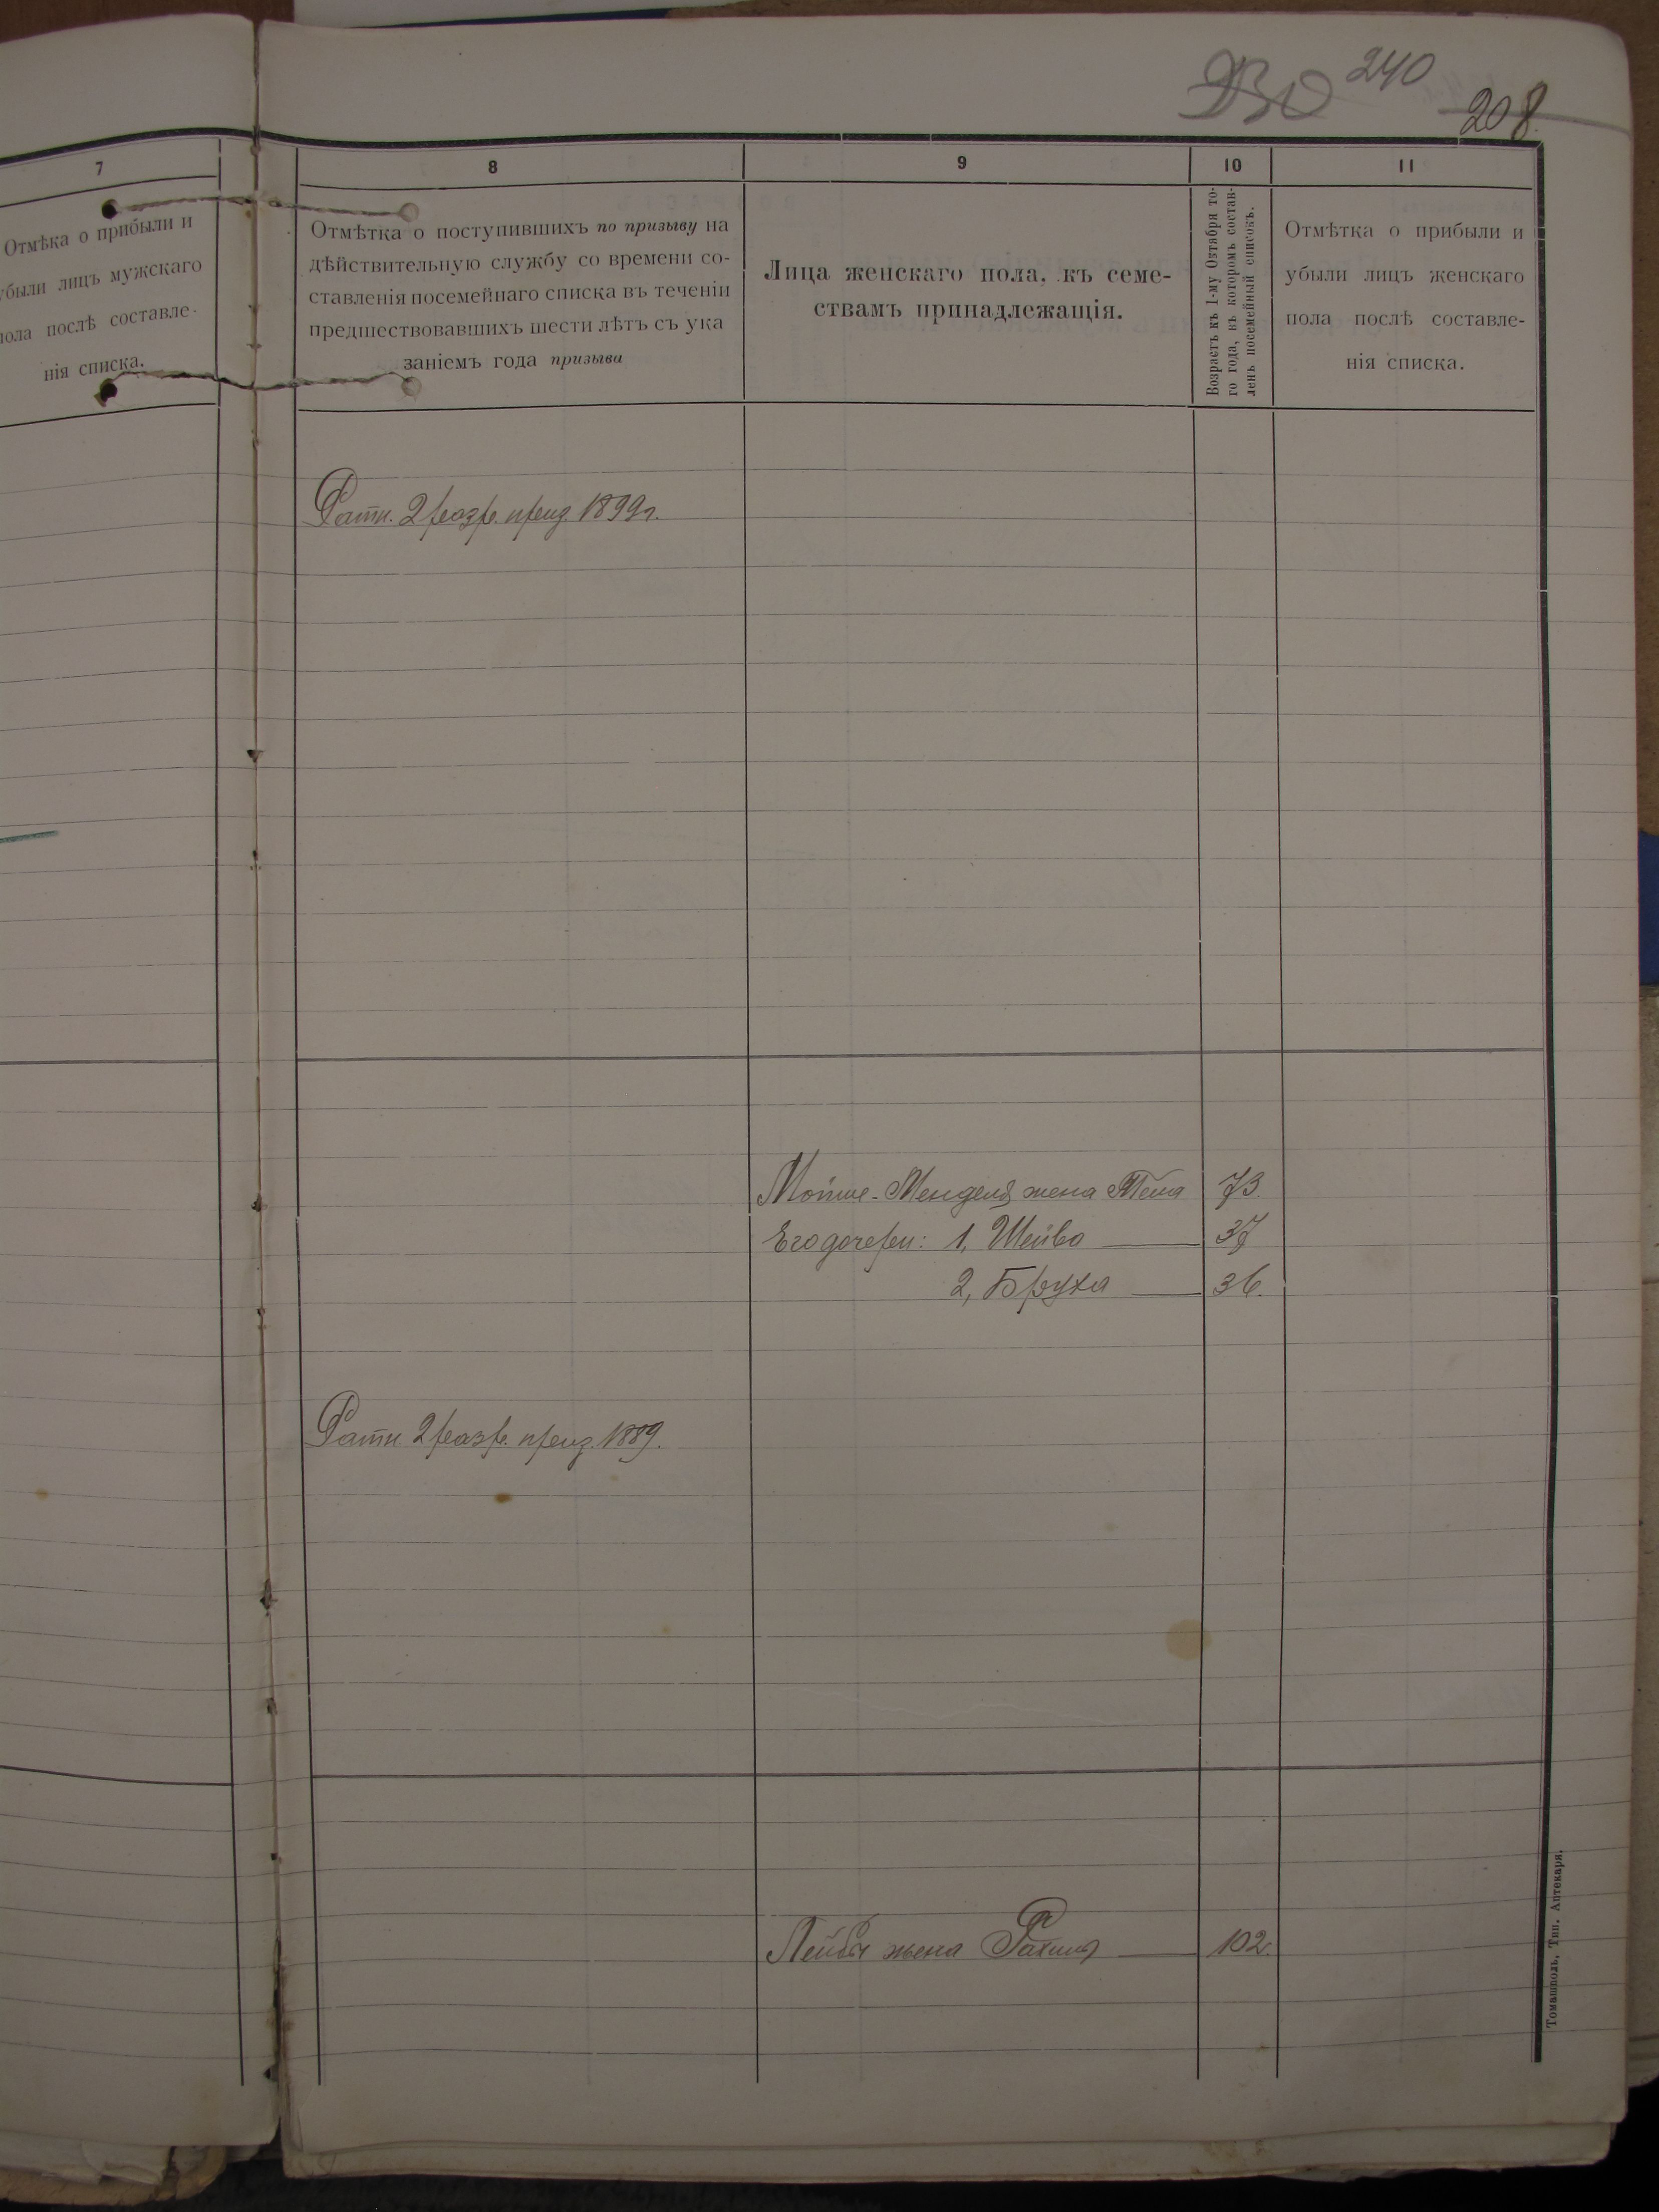 240
208.
7
Отмѣка о прибыли и
убыли лицъ мужскаго
пола послѣ составле-
нія списка.
8
Отмѣтка о поступившихъ по призыву на
дѣйствительную службу со времени со-
ставленія посемейнаго списка въ теченіи
предшествовавшихъ шести лѣтъ съ ука
заніемъ года призыва
9
Лица женскаго пола, къ семе-
ствамъ принадлежащія.
10
Возрастъ къ 1-му Октября то-
го года, въ которомъ состав-
ленъ посемейный списокъ.
11
Отмѣтка о прибыли и
убыли лицъ женскаго
пола послѣ составле-
нія списка.
Ратн. 2 разр. приз. 1899г.
Мойше-Менделя жена 73.
Его дочери: 1, Шейва 37
2, Бруха 36.
Ратн. 2 разр. приз. 1889.
Лейбы жена Рахиль 102.
Томашполь, Тип. Аптекаря.